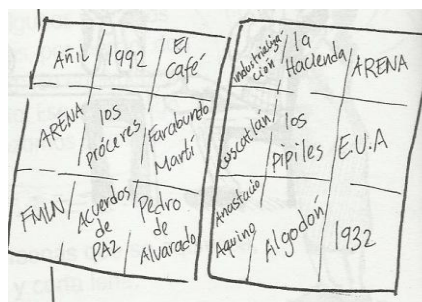 Añil
1992
El
Café
ARENA
los
próceres
Farabundo
Martí
FMLN
Acuerdos
de
PAZ
Pedro
de
Alvarado
industrializa
ción
la
Hacienda
ARENA
Cuscatlán
los
pipiles
E.U.A
Anastacio
Aquino
Algodón
1932